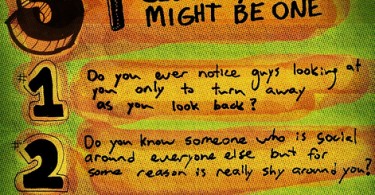 MIGHT BE ONE
#1
Do you ever notice guys looking at
you only to turn away
as you look back?
#2
Do you know someone who is social
around everyone else but for
some reason is really shy around you?